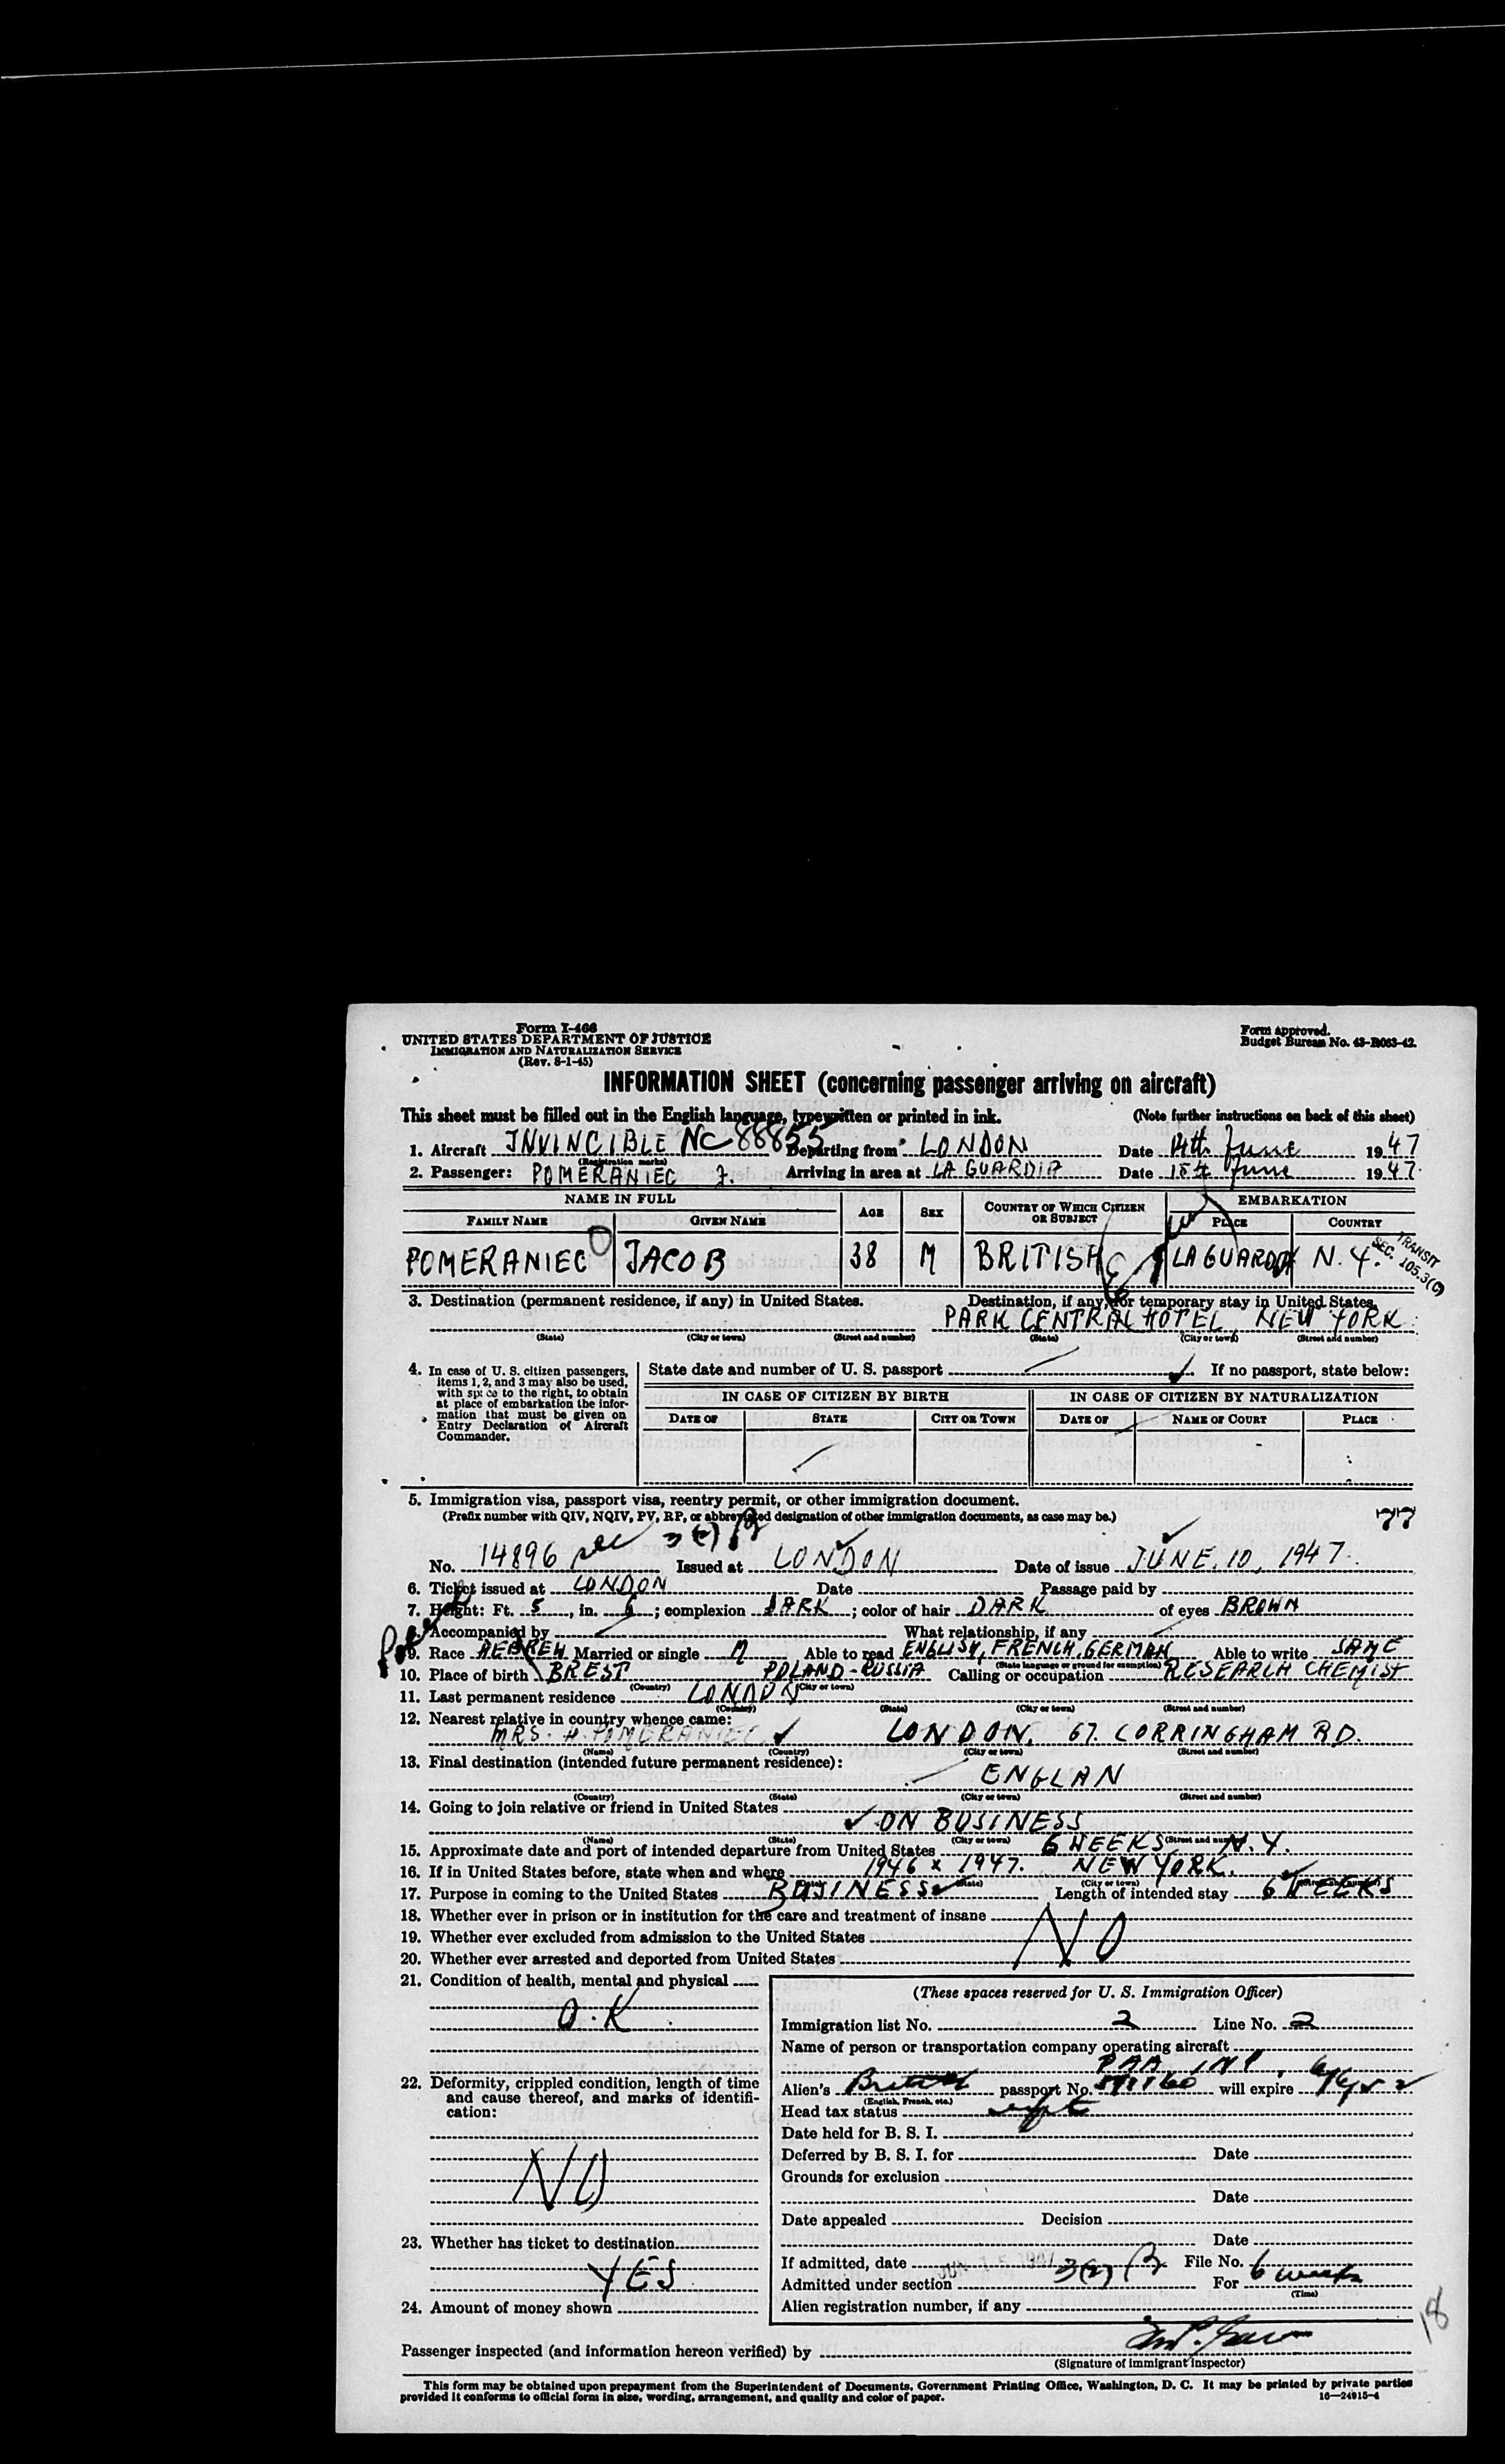 Form I-466
UNITED STATES DEPARTMENT OF JUSTICE
IMMIGRATION AND NATURALIZATION SERVICE
(Rev. 8-1-45)
Form approved.
Budget Bureau No. 43-R063-42.
INFORMATION SHEET (concerning passenger arriving on aircraft)
This sheet must be filled out in the English language, typewritten or printed in ink. (Note further instructions on back of this sheet)
1. Aircraft INVINCIBLE NC 88855 Departing from LONDON Date 14th June 1947
(Registration marks)
2. Passenger: POMERANIEC J. Arriving in area at LA GUARDIA Date 15th June 1947
NAME IN FULL AGE SEX COUNTRY OF WHICH CITIZEN OR SUBJECT EMBARKATION
FAMILY NAME GIVEN NAME PLACE COUNTRY
POMERANIEC JACOB 38 M BRITISH LA GUARDIA N.Y.
TRANSIT
SEC. 105.3(C)
3. Destination (permanent residence, if any) in United States. Destination, if any, for temporary stay in United States.
PARK CENTRAL HOTEL NEW YORK
(State) (City or town) (Street and number) (State) (City or town) (Street and number)
4. In case of U. S. citizen passengers, items 1, 2, and 3 may also be used, with space to the right, to obtain at place of embarkation the information that must be given on Entry Declaration of Aircraft Commander.
State date and number of U. S. passport If no passport, state below:
IN CASE OF CITIZEN BY BIRTH IN CASE OF CITIZEN BY NATURALIZATION
DATE OF STATE CITY OR TOWN DATE OF NAME OF COURT PLACE
5. Immigration visa, passport visa, reentry permit, or other immigration document.
(Prefix number with QIV, NQIV, PV, RP, or abbreviated designation of other immigration documents, as case may be.)
No. 14896 sec 3(2) B Issued at LONDON Date of issue JUNE. 10, 1947.
6. Ticket issued at LONDON Date Passage paid by
7. Height: Ft. 5, in. 6; complexion DARK; color of hair DARK of eyes BROWN
8. Accompanied by What relationship, if any
9. Race HEBREW Married or single M Able to read ENGLISH, FRENCH, GERMAN Able to write SAME
(State language or ground for exemption)
10. Place of birth BREST POLAND-RUSSIA Calling or occupation RESEARCH CHEMIST
(Country) (City or town)
11. Last permanent residence LONDON
(Country) (State) (City or town) (Street and number)
12. Nearest relative in country whence came:
MRS. H. POMERANIEC LONDON. 67. CORRINGHAM RD.
(Name) (Country) (City or town) (Street and number)
13. Final destination (intended future permanent residence):
ENGLAN
(Country) (State) (City or town) (Street and number)
14. Going to join relative or friend in United States
ON BUSINESS
(Name) (State) (City or town) (Street and number)
15. Approximate date and port of intended departure from United States 6 WEEKS N.Y.
16. If in United States before, state when and where 1946 x 1947. NEW YORK.
(State) (City or town)
17. Purpose in coming to the United States BUSINESS Length of intended stay 6 WEEKS
18. Whether ever in prison or in institution for the care and treatment of insane
19. Whether ever excluded from admission to the United States NO
20. Whether ever arrested and deported from United States
21. Condition of health, mental and physical
O.K
22. Deformity, crippled condition, length of time and cause thereof, and marks of identification:
NO
23. Whether has ticket to destination
YES
24. Amount of money shown
(These spaces reserved for U. S. Immigration Officer)
Immigration list No. 2 Line No. 2
Name of person or transportation company operating aircraft
PAA
Alien's British passport No. will expire
(English, French, etc.)
Head tax status
Date held for B. S. I.
Deferred by B. S. I. for Date
Grounds for exclusion
Date
Date appealed Decision
Date
If admitted, date JUN 15 1947 File No.
Admitted under section 3(2) B For 6 weeks
(Time)
Alien registration number, if any
18
Passenger inspected (and information hereon verified) by
(Signature of immigrant inspector)
This form may be obtained upon prepayment from the Superintendent of Documents, Government Printing Office, Washington, D. C. It may be printed by private parties
provided it conforms to official form in size, wording, arrangement, and quality and color of paper.
16—24915-4